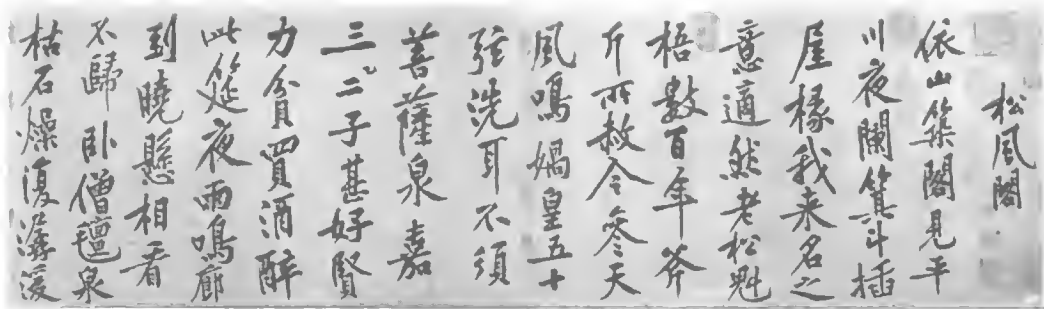 松風閣
依山築閣見平
川夜闌箕斗插
屋椽我来名之
意適然老松魁
梧數百年斧
斤所赦今參天
風鳴媧皇五十
弦洗耳不須
菩薩泉嘉
三二子甚好賢
力貧買酒醉
此筵夜雨鳴廊
到曉懸相看
不歸卧僧氈泉
枯石燥復潺湲